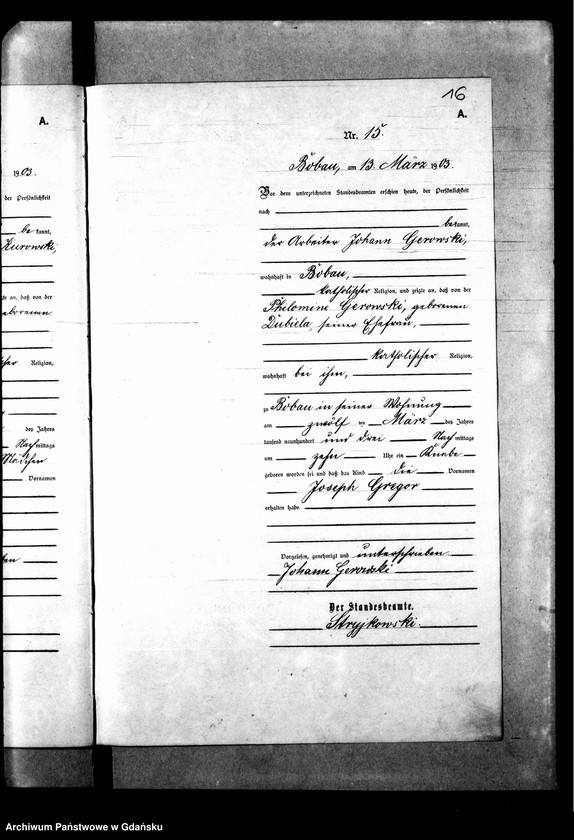 A.
1903.
der Persönlichkeit
be kannt,
Kurowski,
te an, daß von der
eborenen
Religion,
des Jahres
Nachmittags
Mädchen
Vornamen
16
A.
Nr. 15.
Bobau, am 13. März 1903.
Vor dem unterzeichneten Standesbeamten erschien heute, der Persönlichkeit
nach
bekannt,
der Arbeiter Johann Gerowski,
wohnhaft in Bobau,
katholischer Religion, und zeigte an, daß von der
Philomine Gerowski, geborenen
Dubiela, seiner Ehefrau,
katholischer Religion,
wohnhaft bei ihm,
zu Bobau in seiner Wohnung
am zwölf ten März des Jahres
tausend neunhundert und drei Nachmittags
um zehn Uhr ein Knabe
geboren worden sei und daß das Kind die Vornamen
Joseph Gregor
erhalten habe.
Vorgelesen, genehmigt und unterschrieben
Johann Gerowski
Der Standesbeamte.
Stryjkowski.
Archiwum Państwowe w Gdańsku